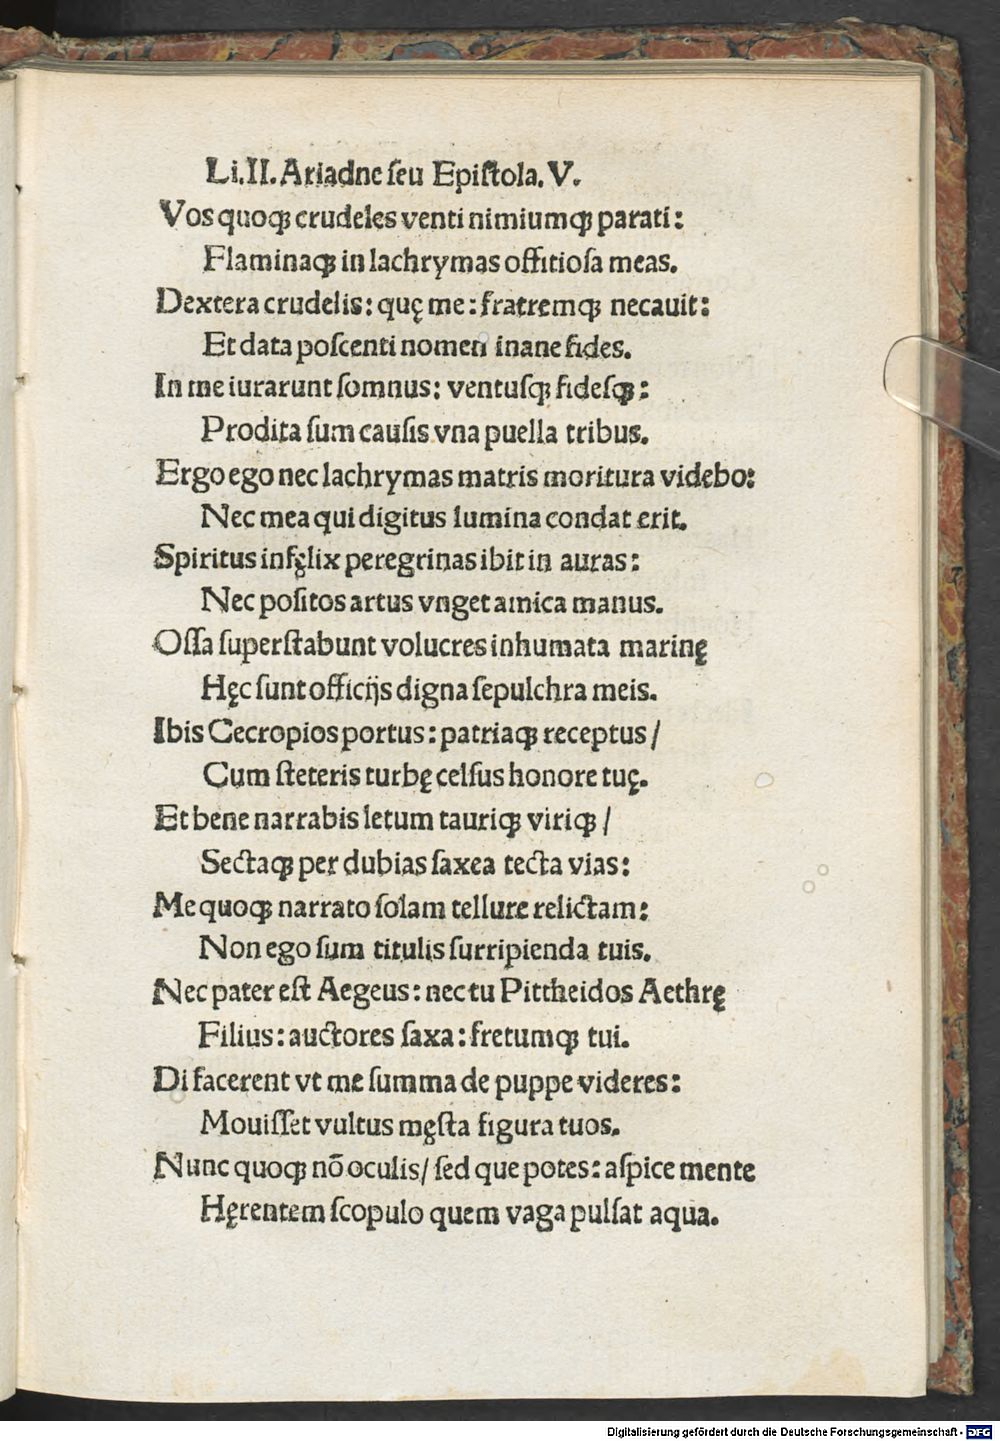 Li.II.Ariadne ſeu Epiſtola.V.
Vos quoqꝫ crudeles venti nimiumqꝫ parati:
Flaminaqꝫ in lachrymas offitioſa meas.
Dextera crudelis: quę me: fratremqꝫ necauit:
Et data poſcenti nomen inane fides.
In me iurarunt ſomnus: ventuſqꝫ fideſqꝫ:
Prodita ſum cauſis vna puella tribus.
Ergo ego nec lachrymas matris moritura videbo:
Nec mea qui digitus lumina condat erit.
Spiritus infęlix peregrinas ibit in auras:
Nec poſitos artus vnget amica manus.
Oſſa ſuperſtabunt volucres inhumata marinę
Hęc ſunt officijs digna ſepulchra meis.
Ibis Cecropios portus: patriaqꝫ receptus /
Cum ſteteris turbę celſus honore tuę.
Et bene narrabis letum tauriqꝫ viriqꝫ /
Sectaqꝫ per dubias ſaxea tecta vias:
Me quoqꝫ narrato ſolam tellure relictam:
Non ego ſum titulis ſurripienda tuis.
Nec pater eſt Aegeus: nec tu Pittheidos Aethrę
Filius: auctores ſaxa: fretumqꝫ tui.
Di facerent vt me ſumma de puppe videres:
Mouiſſet vultus męſta figura tuos.
Nunc quoqꝫ nō oculis/ ſed que potes: aſpice mente
Hęrentem ſcopulo quem vaga pulſat aqua.
Digitalisierung gefördert durch die Deutsche Forschungsgemeinschaft - DFG